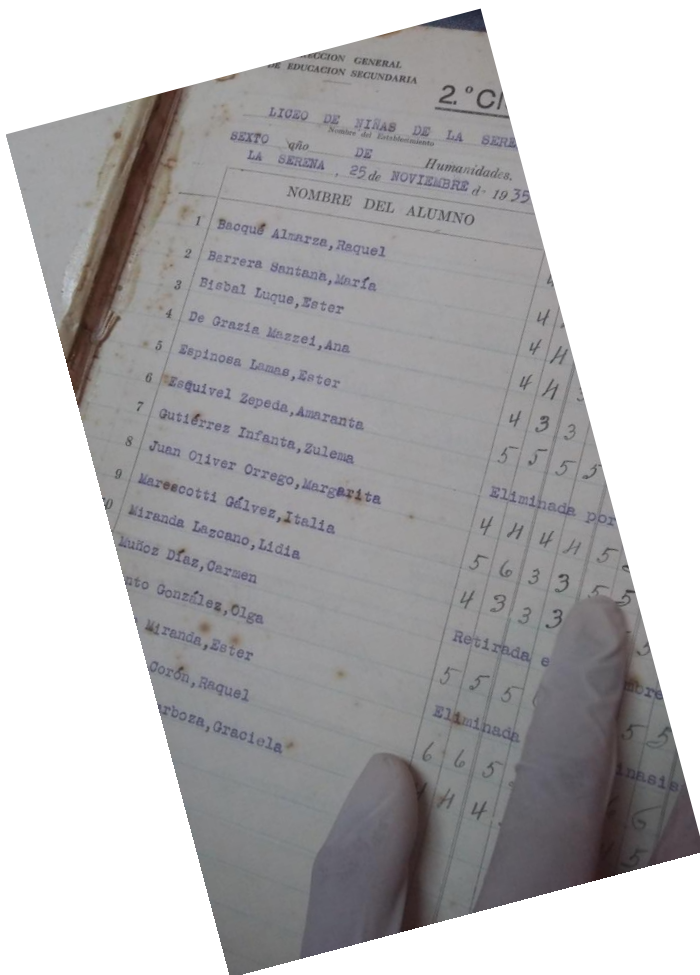 RECCION GENERAL
DE EDUCACION SECUNDARIA
2.º CI
LICEO DE NIÑAS DE LA SERE
Nombre del Establecimiento
SEXTO año DE Humanidades.
LA SERENA, 25 de NOVIEMBRE de 1935
NOMBRE DEL ALUMNO
1 Bacqué Almarza,Raquel
2 Barrera Santana,María 4
3 Bisbal Luque,Ester 4 4
4 De Grazia Mazzei,Ana 4 4
5 Espinosa Lamas,Ester 4 3 3
6 Esquivel Zepeda,Amaranta 5 5 5 5
7 Gutiérrez Infanta,Zulema Eliminada por
8 Juan Oliver Orrego,Margarita 4 4 4 4 5
9 Marescotti Gálvez,Italia 5 6 3 3 5 5
10 Miranda Lazcano,Lidia 4 3 3 3
Muñoz Díaz,Carmen Retirada e mbre
nto González,Olga 5 5 5 5 5
Miranda,Ester Eliminada inasis
Corón,Raquel 6 6 5 6
rboza,Graciela 4 4 4 5